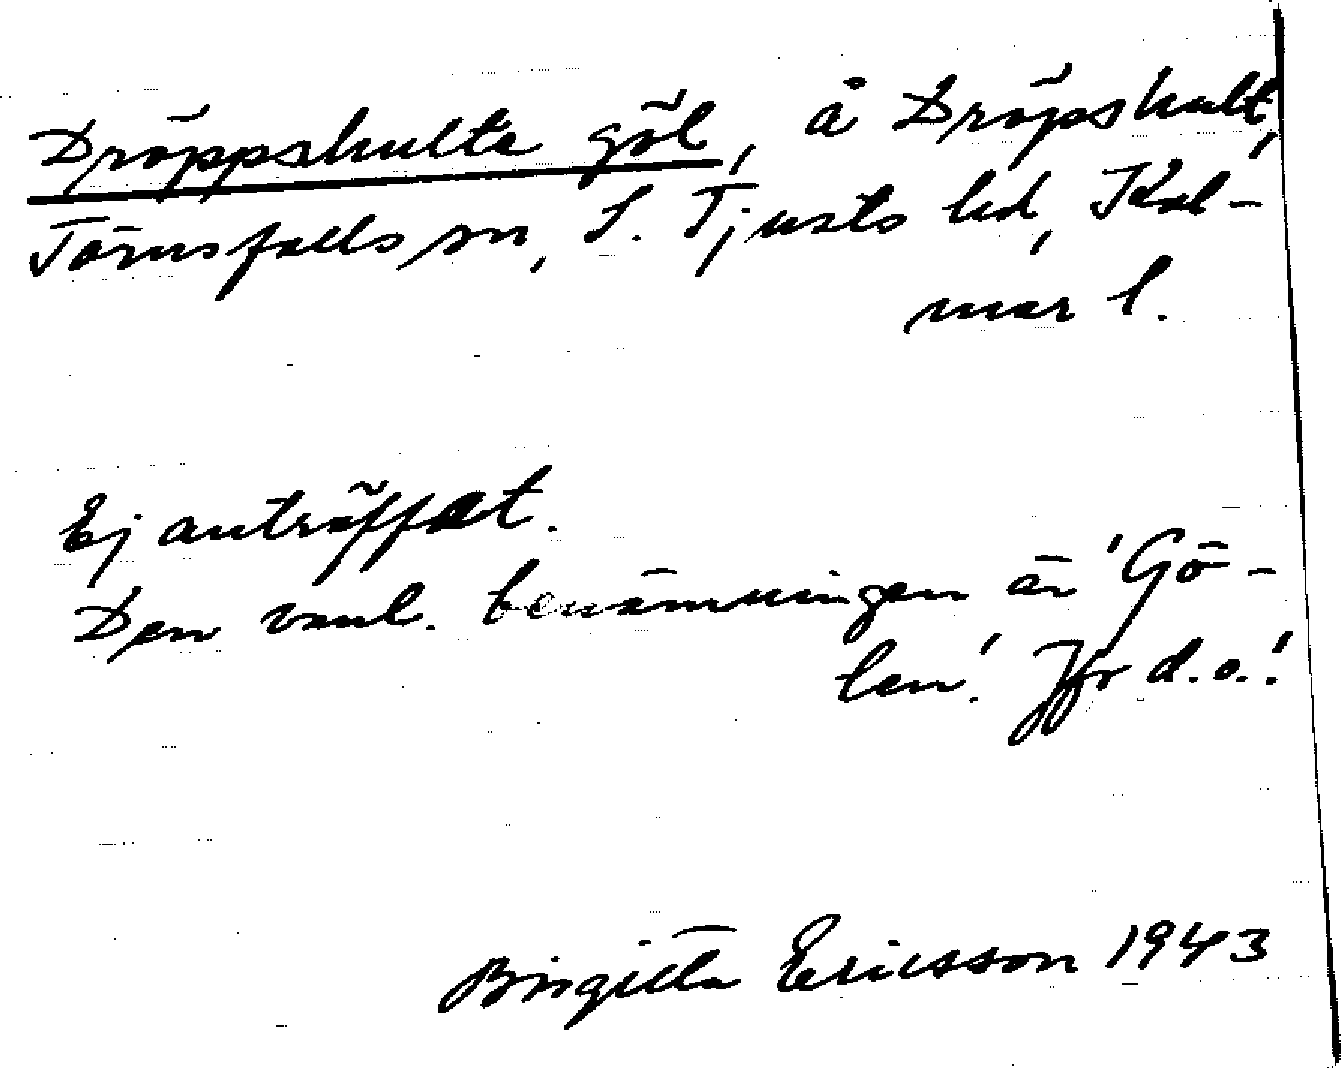 Dröppshulta göl, å Dröpshult,
Törnsfalls sn, S. Tjusts hd, Kal-
mar l.
Ej anträffat.
Den vanl. benämningen är 'Gö-
len'. Jfr d.o.!
Birgitta Ericsson 1943